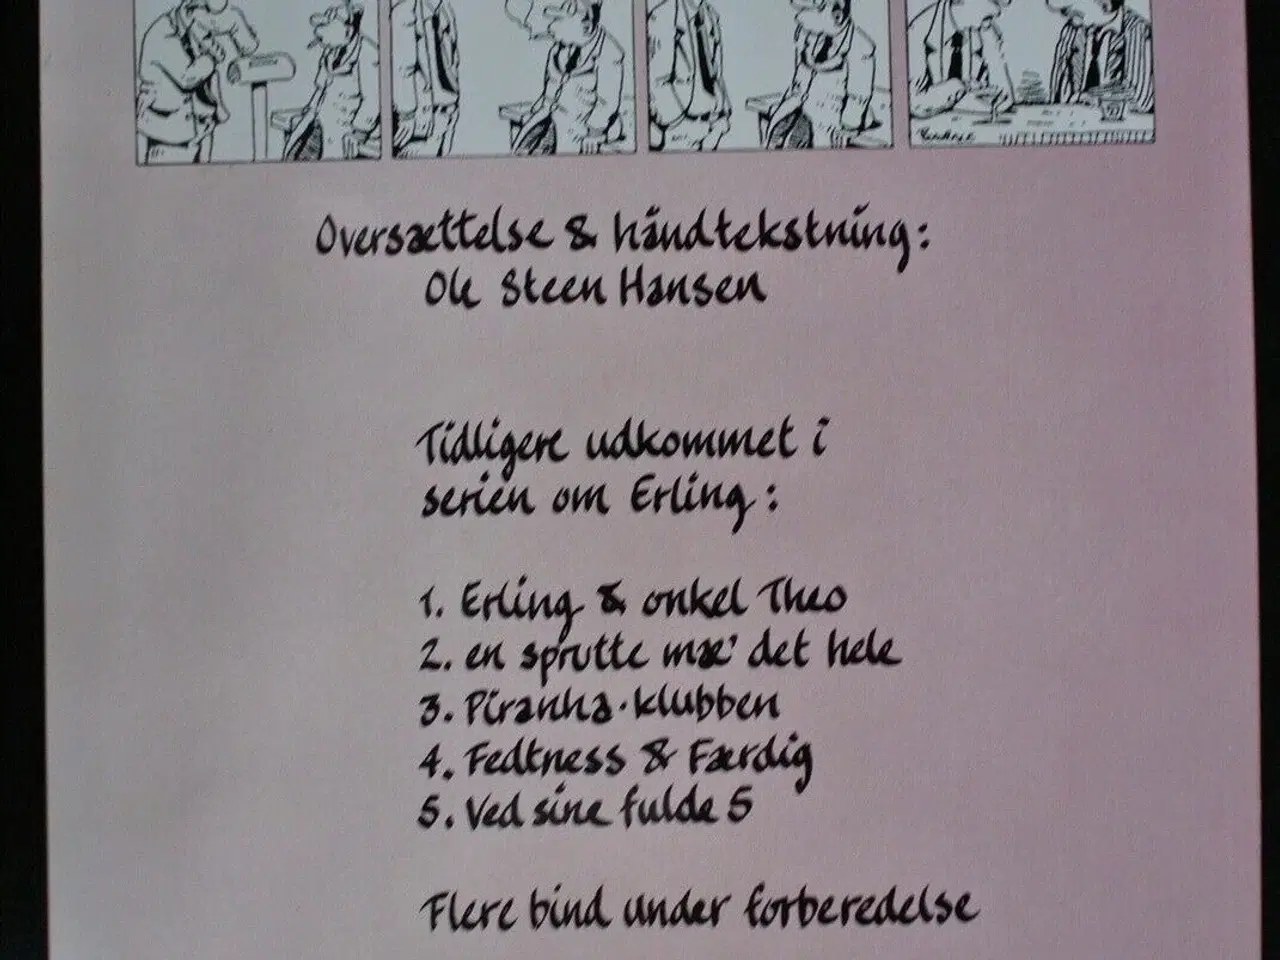 Oversættelse & håndtekstning:
Ole Steen Hansen
Tidligere udkommet i
serien om Erling:
1. Erling & onkel Theo
2. en sprutte mæ' det hele
3. Piranha-klubben
4. Fedtness & Færdig
5. Ved sine fulde 5
Flere bind under forberedelse